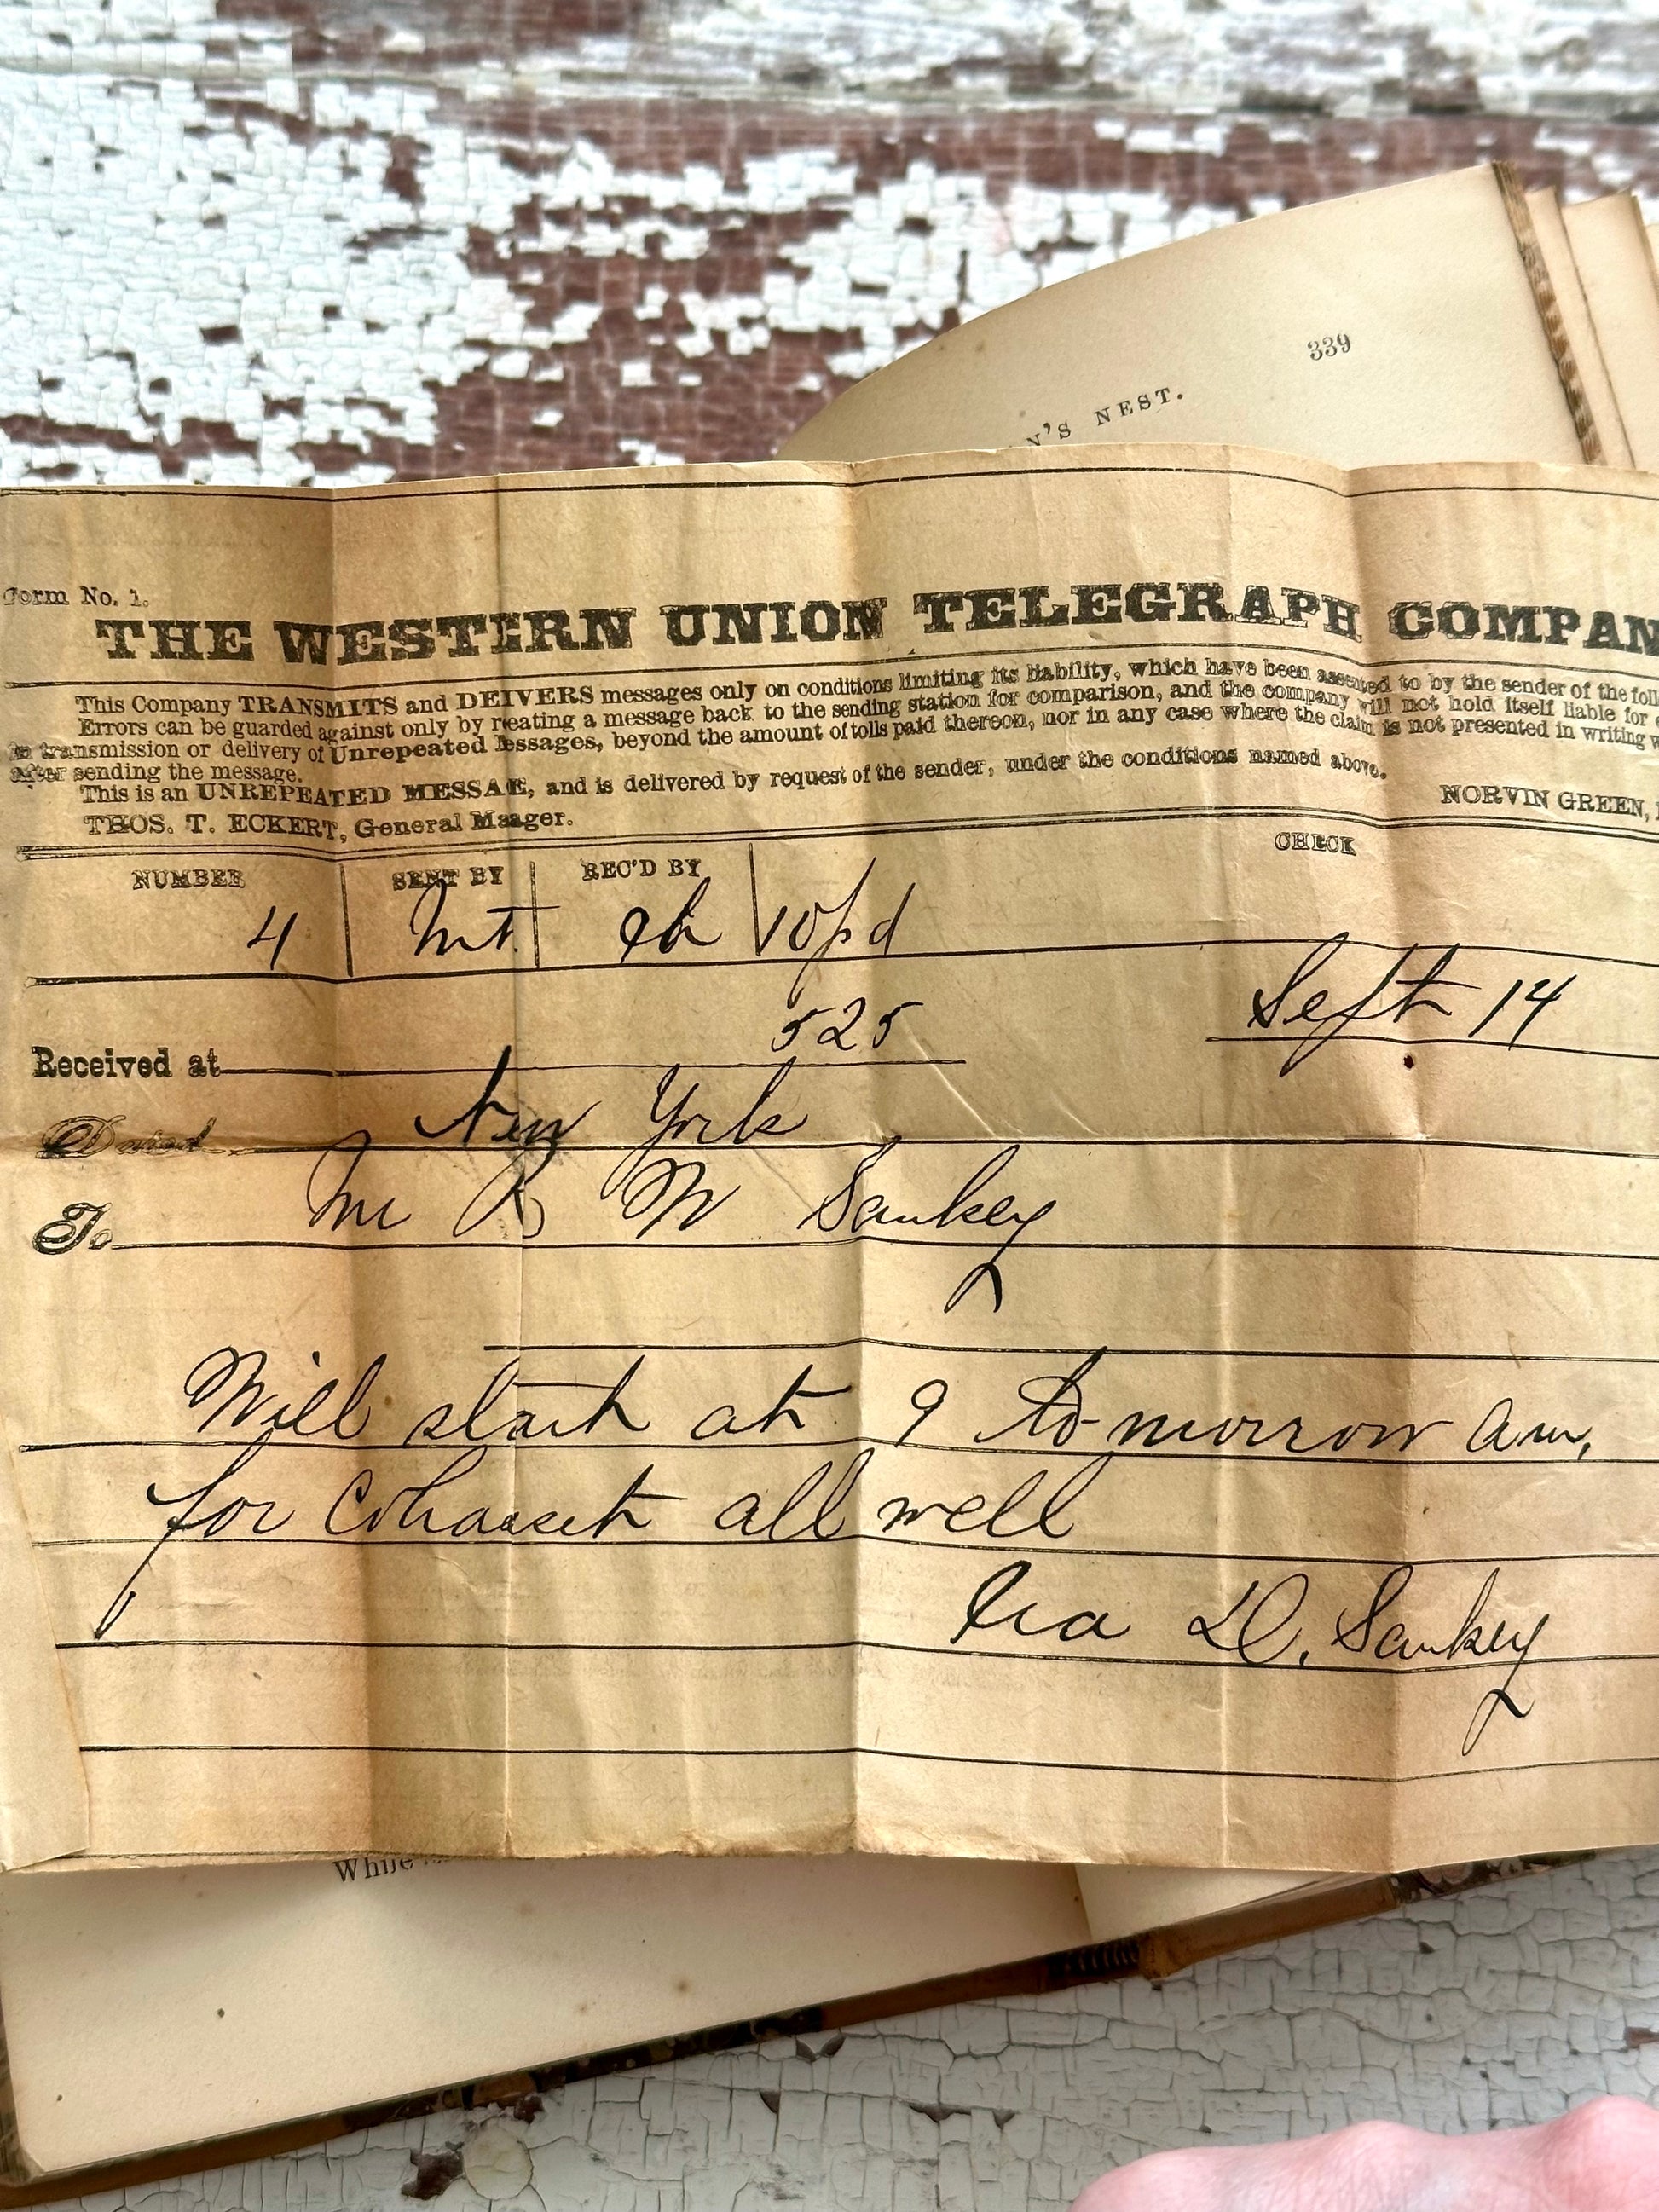 339
N'S NEST.
Form No. 1.
THE WESTERN UNION TELEGRAPH COMPAN
This Company TRANSMITS and DEIVERS messages only on conditions limiting its liability, which have been assented to by the sender of the foll
Errors can be guarded against only by reating a message back to the sending station for comparison, and the company will not hold itself liable for
in transmission or delivery of Unrepeated essages, beyond the amount of tolls paid thereon, nor in any case where the claim is not presented in writing w
after sending the message.
This is an UNREPEATED MESSAE, and is delivered by request of the sender, under the conditions named above.
THOS. T. ECKERT, General Maager.
NORVIN GREEN,
NUMBER SENT BY REC'D BY CHECK
4 10 pd
525 Sept 14
Received at
Dated New York
To Mr R W Sankey
Will start at 9 to-morrow am,
for Cohasset all well
Ira D. Sankey
While